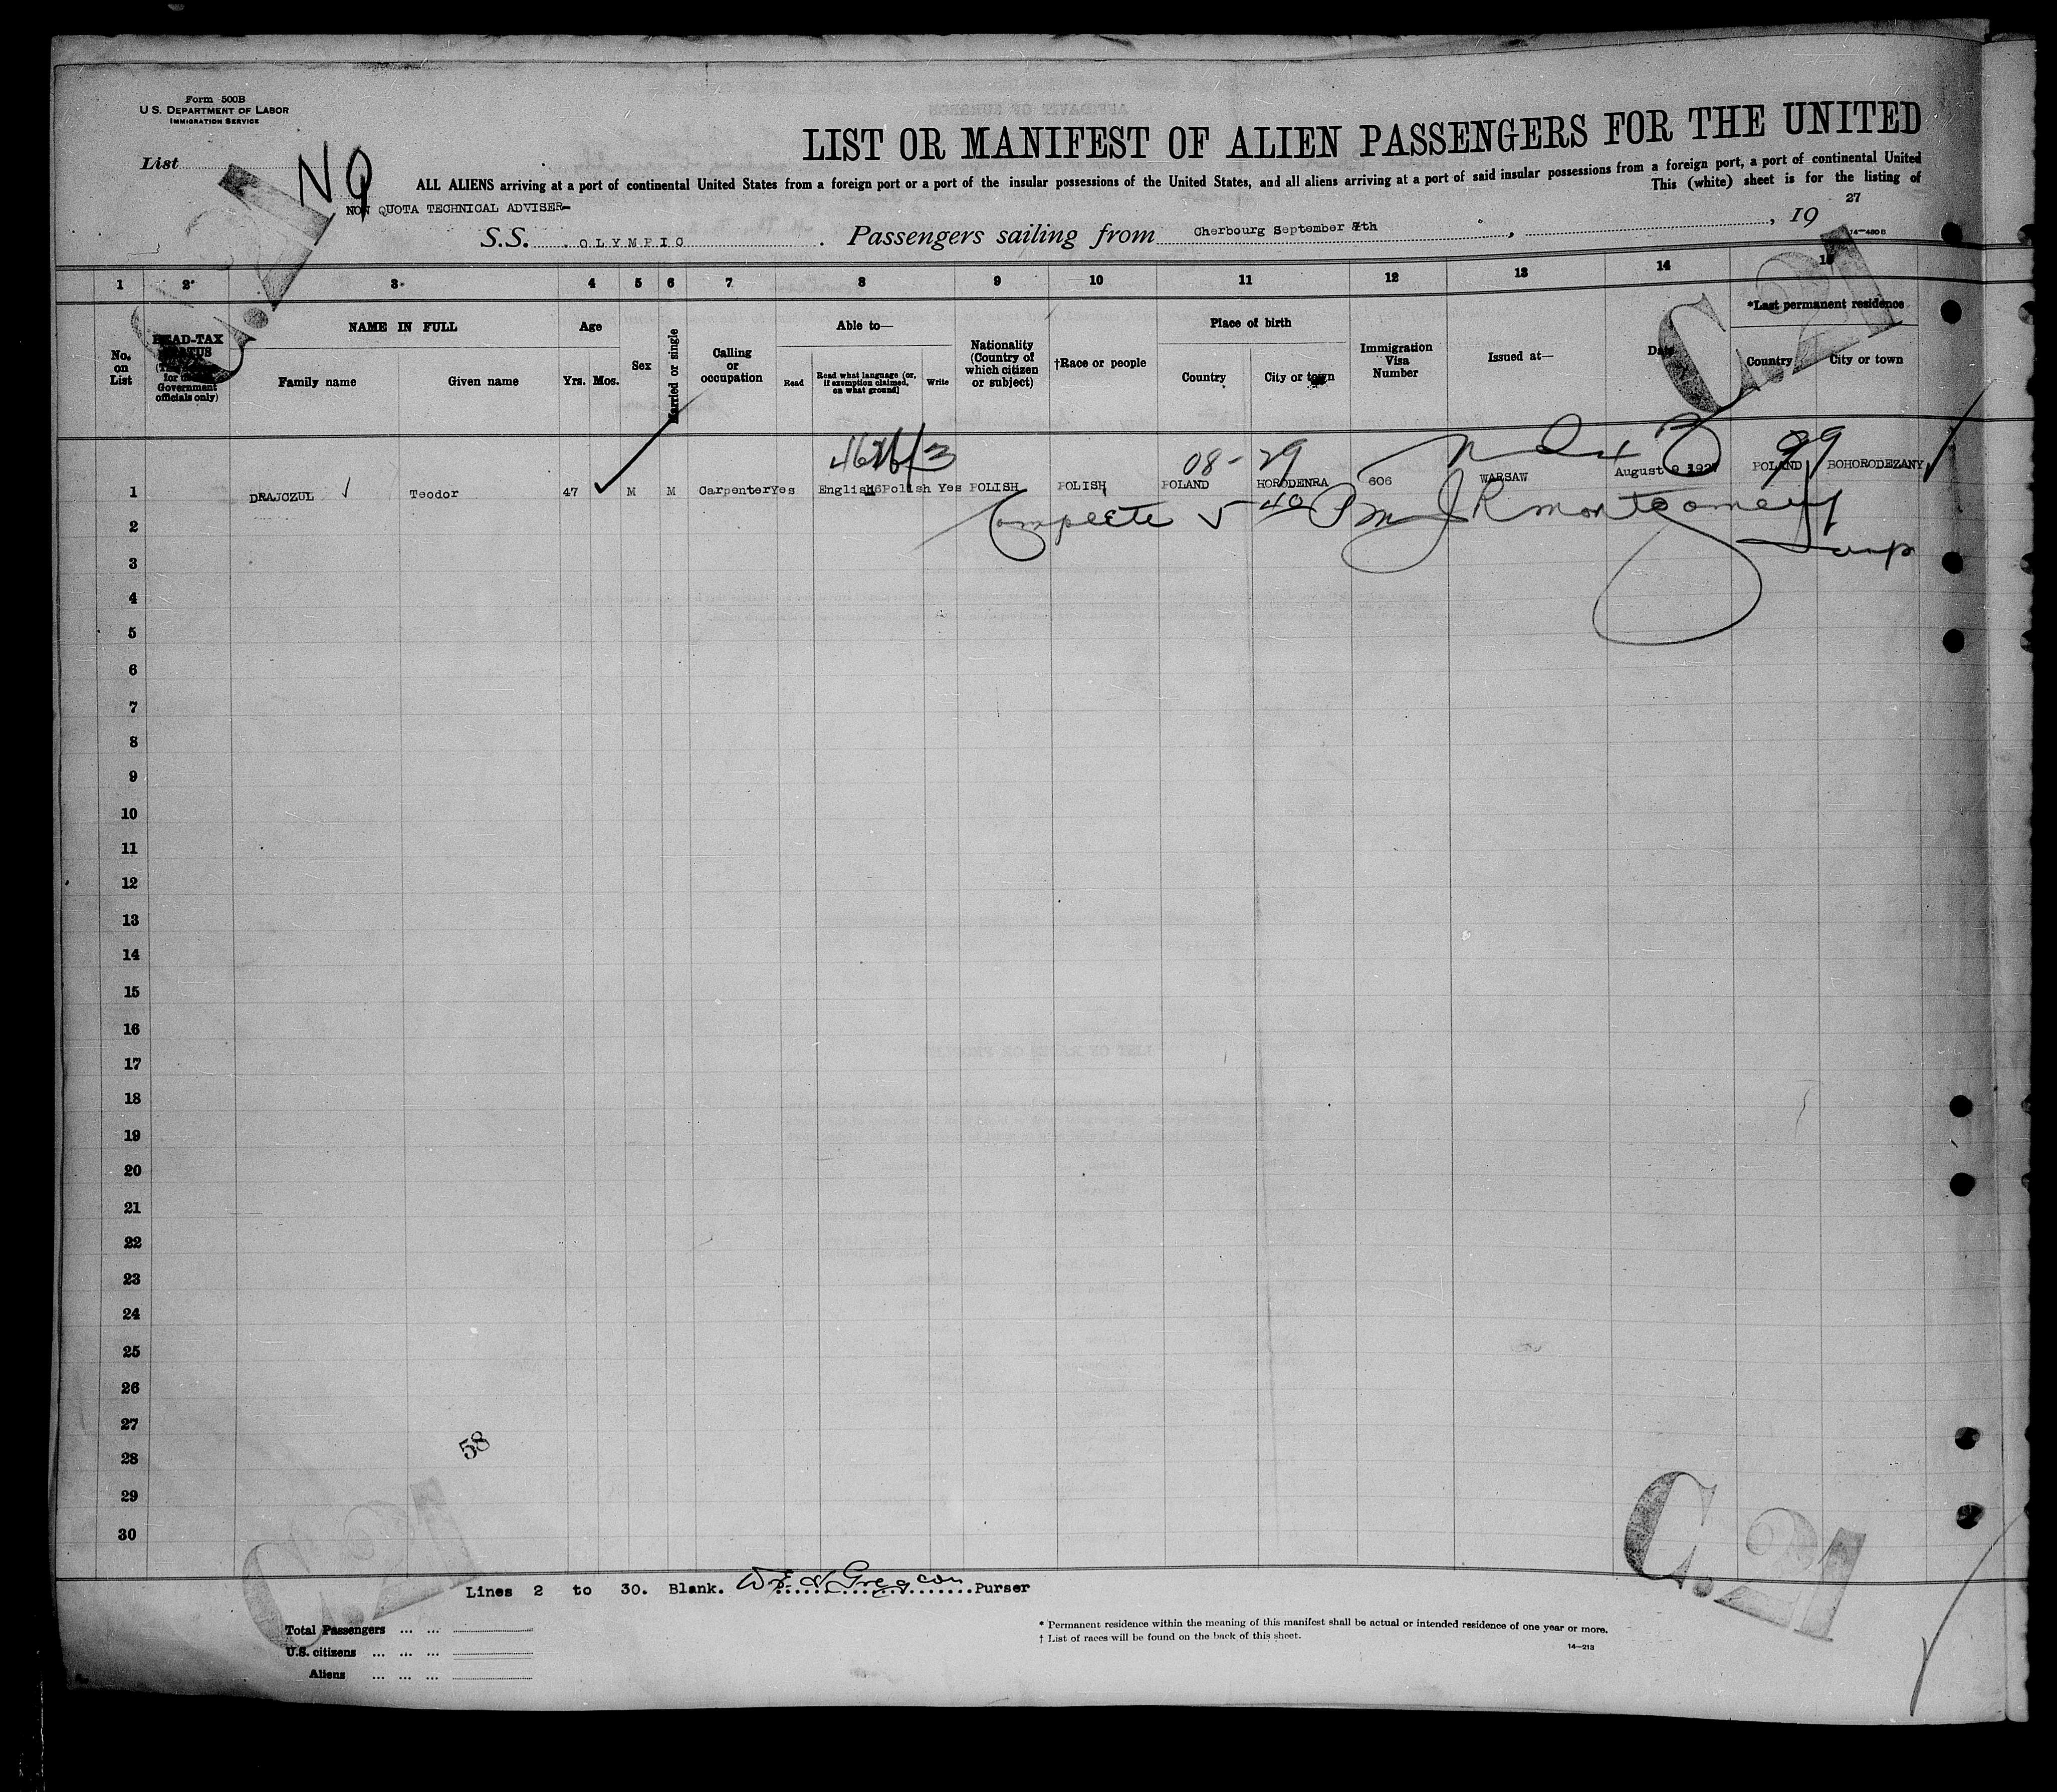 Form 500B
U S. DEPARTMENT OF LABOR
IMMIGRATION SERVICE
List
NQ
C.21
LIST OR MANIFEST OF ALIEN PASSENGERS FOR THE UNITED
ALL ALIENS arriving at a port of continental United States from a foreign port or a port of the insular possessions of the United States, and all aliens arriving at a port of said insular possessions from a foreign port, a port of continental United
This (white) sheet is for the listing of
NON QUOTA TECHNICAL ADVISER-
S.S. OLYMPIC. Passengers sailing from Cherbourg September 7th, , 19 27
14—480 B
C.21
1 2 3 4 5 6 7 8 9 10 11 12 13 14 15
No. on List
HEAD-TAX STATUS
Government officials only)
NAME IN FULL
Family name Given name
Age
Yrs. Mos.
Sex
Married or single
Calling or occupation
Able to—
Read
Read what language (or, if exemption claimed, on what ground)
Write
Nationality (Country of which citizen or subject)
†Race or people
Place of birth
Country City or town
Immigration Visa Number
Issued at—
Date
*Last permanent residence
Country City or town
08-29 99
1 DRAJCZUL Teodor 47 M M Carpenter Yes English Polish Yes POLISH POLISH POLAND HORODENRA 606 WARSAW August 9 1927 POLAND BOHORODEZANY
Complete 5 40 Pm J R Montgomery
Insp
2
3
4
5
6
7
8
9
10
11
12
13
14
15
16
17
18
19
20
21
22
23
24
25
26
27
58
28
29
30
C.21
C.21
Lines 2 to 30. Blank. Purser
Total Passengers
U.S. citizens
Aliens
* Permanent residence within the meaning of this manifest shall be actual or intended residence of one year or more.
† List of races will be found on the back of this sheet.
14—213